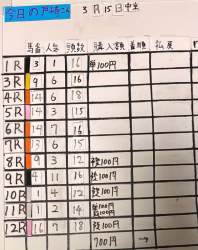 3月15日中京
馬番 人気 頭数 購入額 着順 払戻
1R 3 1 16 単100円
3R 9 6 16
4R 14 6 18
5R 13 3 18
6R 14 7 16
7R 13 6 15
8R 9 3 12 複100円
9R 4 11 16 複100円
10R 1 4 12 複100円
11R 1 2 14
12R 16 7 18 複100円
700円 →